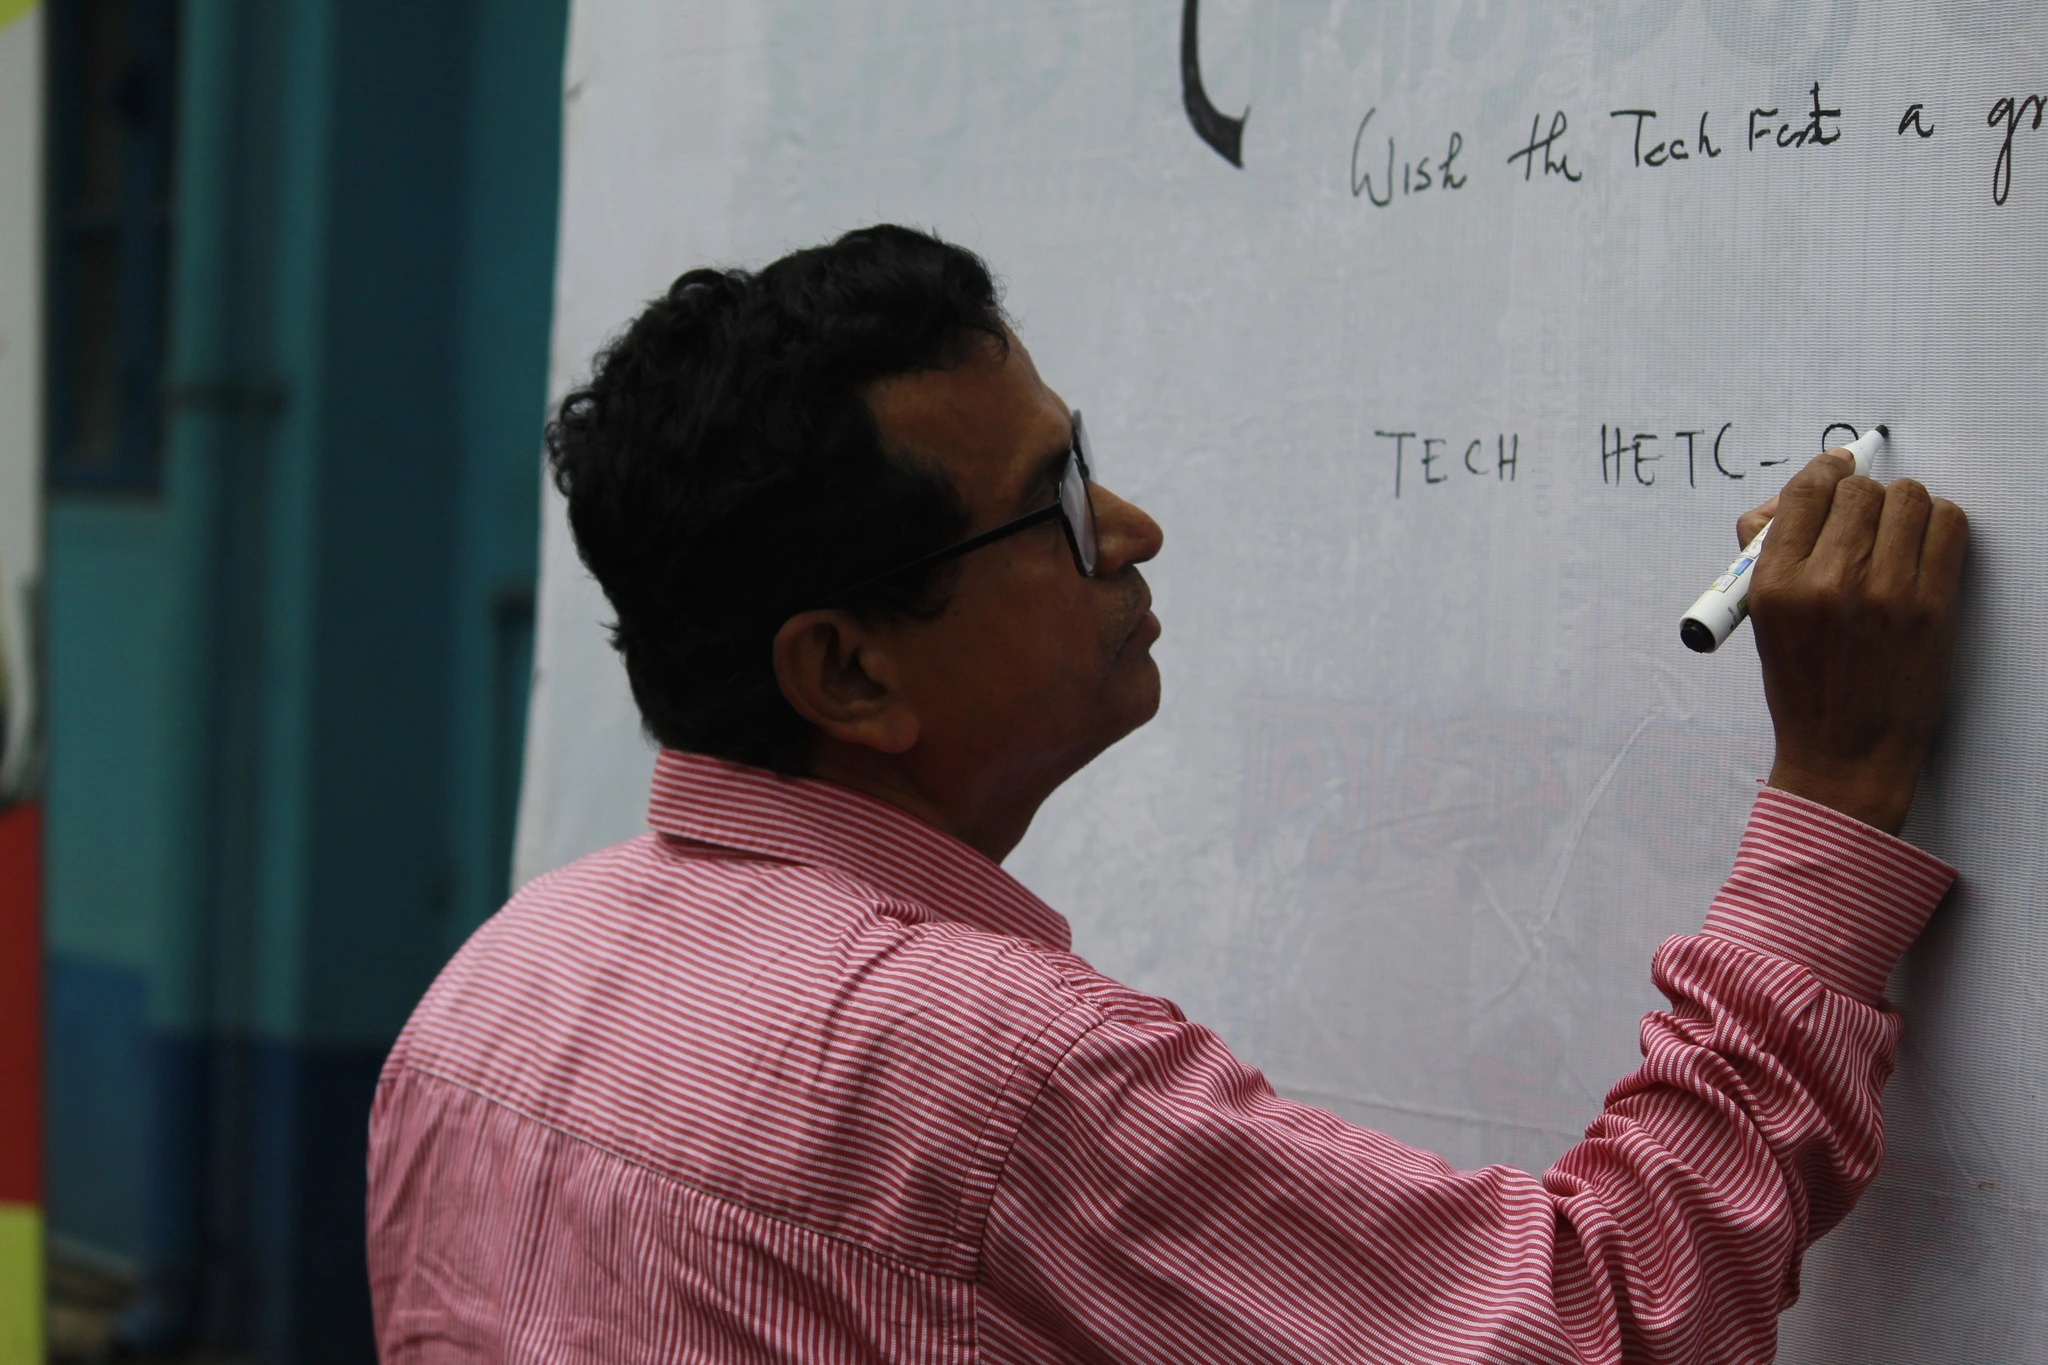 Wish the Tech Fest a gr
TECH HETC-